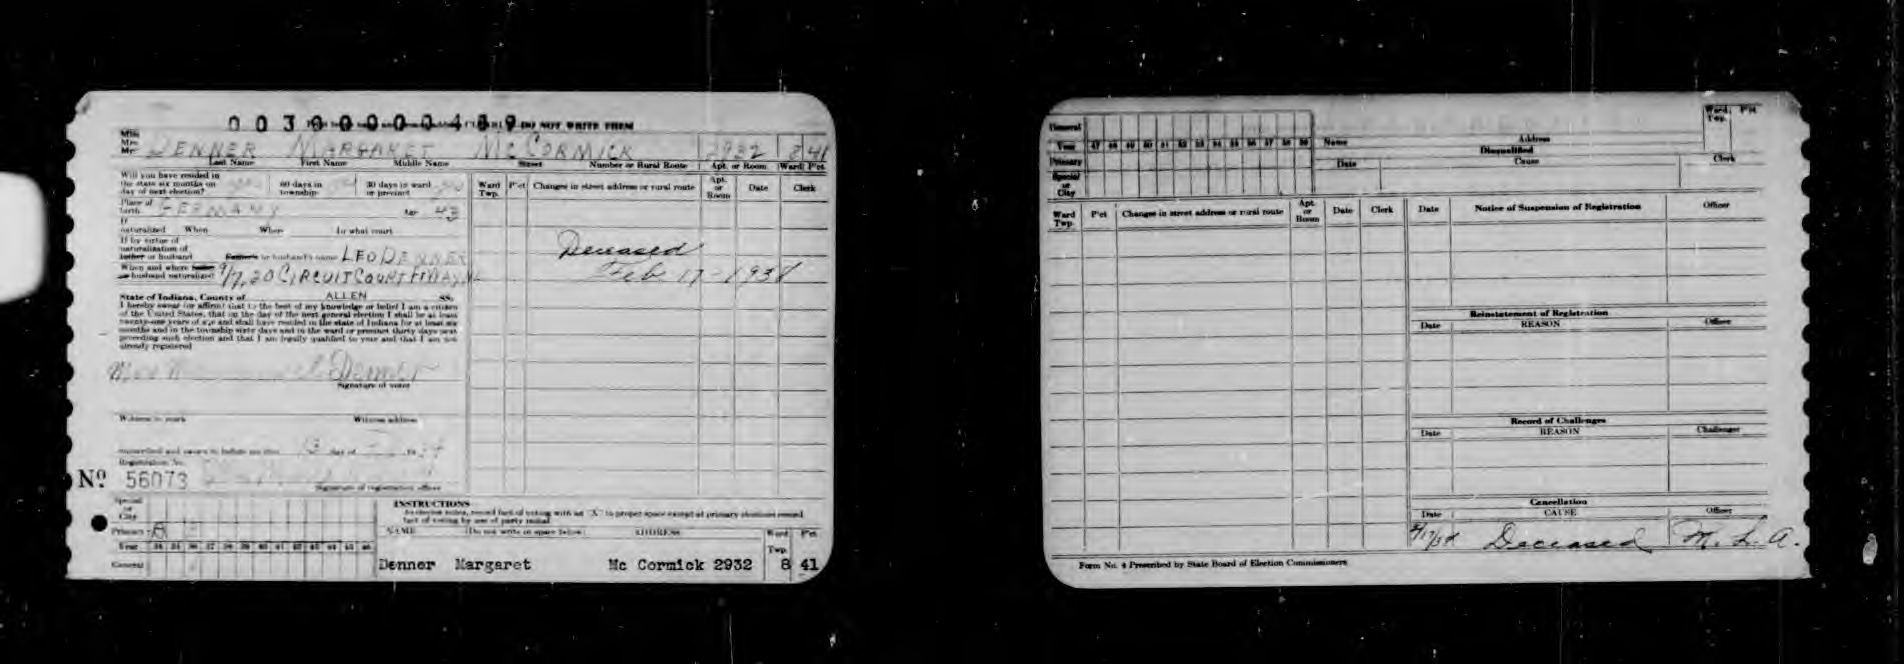 0 0 3 0 0 0 0 0 0 4 8 9 DO NOT WRITE
Miss
Mrs.
Mr. DENNER MARGARET MCCORMICK 2932 8 41
Last Name First Name Middle Name Street Number or Rural Route Apt. or Room Ward P'ct
Will you have resided in
the state six months on
day of next election?
60 days in
township
30 days in ward
or precinct
Ward
Twp. P'ct Changes in street address or rural route Apt.
or
Room Date Clerk
Place of
birth GERMANY Age 43
If
naturalized When Where In what court
If by virtue of
naturalization of
father or husband Father's or husband's name LEO DENNER
When and where father
or husband naturalized 9/7,20 CIRCUIT COURT FT WAYNE
Deceased
Feb. 17-1938
State of Indiana, County of ALLEN SS.
I hereby swear (or affirm) that to the best of my knowledge or belief I am a citizen
of the United States, that on the day of the next general election I shall be at least
twenty-one years of age and shall have resided in the state of Indiana for at least six
months and in the township sixty days and in the ward or precinct thirty days next
preceding such election and that I am legally qualified to vote and that I am not
already registered
Denner
Signature of voter
Witness to mark Witness address
Subscribed and sworn to before me this 13 day of 19 34
Registration No.
No 56073
Signature of registration officer
Special
or
City
Primary
Year 34 35 36 37 38 39 40 41 42 43 44 45 46
General
INSTRUCTIONS
In election notes, record fact of voting with an "X" in proper space except at primary elections record
fact of voting by use of party initial
NAME (Do not write in space below) ADDRESS Ward
Twp. P'ct
Denner Margaret Mc Cormick 2932 8 41
General
Year 47 48 49 50 51 52 53 54 55 56 57 58 59
Primary
Special
or
City
Name Address Ward
Twp. P'ct
Disqualified
Date Cause Clerk
Ward
Twp. P'ct Changes in street address or rural route Apt.
or
Room Date Clerk
Date Notice of Suspension of Registration Officer
Reinstatement of Registration
Date REASON Officer
Record of Challenges
Date REASON Challenger
Cancellation
Date CAUSE Officer
2/17/38 Deceased M. L. A.
Form No. 4 Prescribed by State Board of Election Commissioners